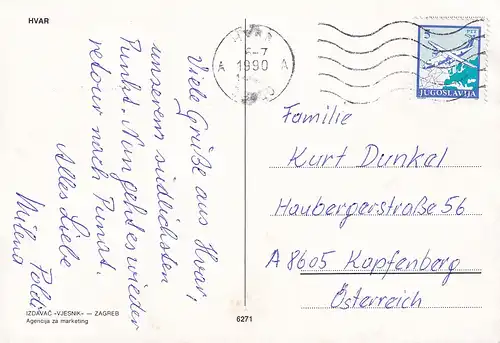 HVAR
Viele Grüße aus Hvar,
unserem südlichsten
Punkt. Nun geht es wieder
retour nach Punat.
Alles Liebe
Milena Poldi
IZDAVAČ «VJESNIK» — ZAGREB
Agencija za marketing
6271
A 1990 A
5 PTT
JUGOSLAVIJA
Familie
Kurt Dunkel
Haubergerstraße 56
A 8605 Kapfenberg
Österreich